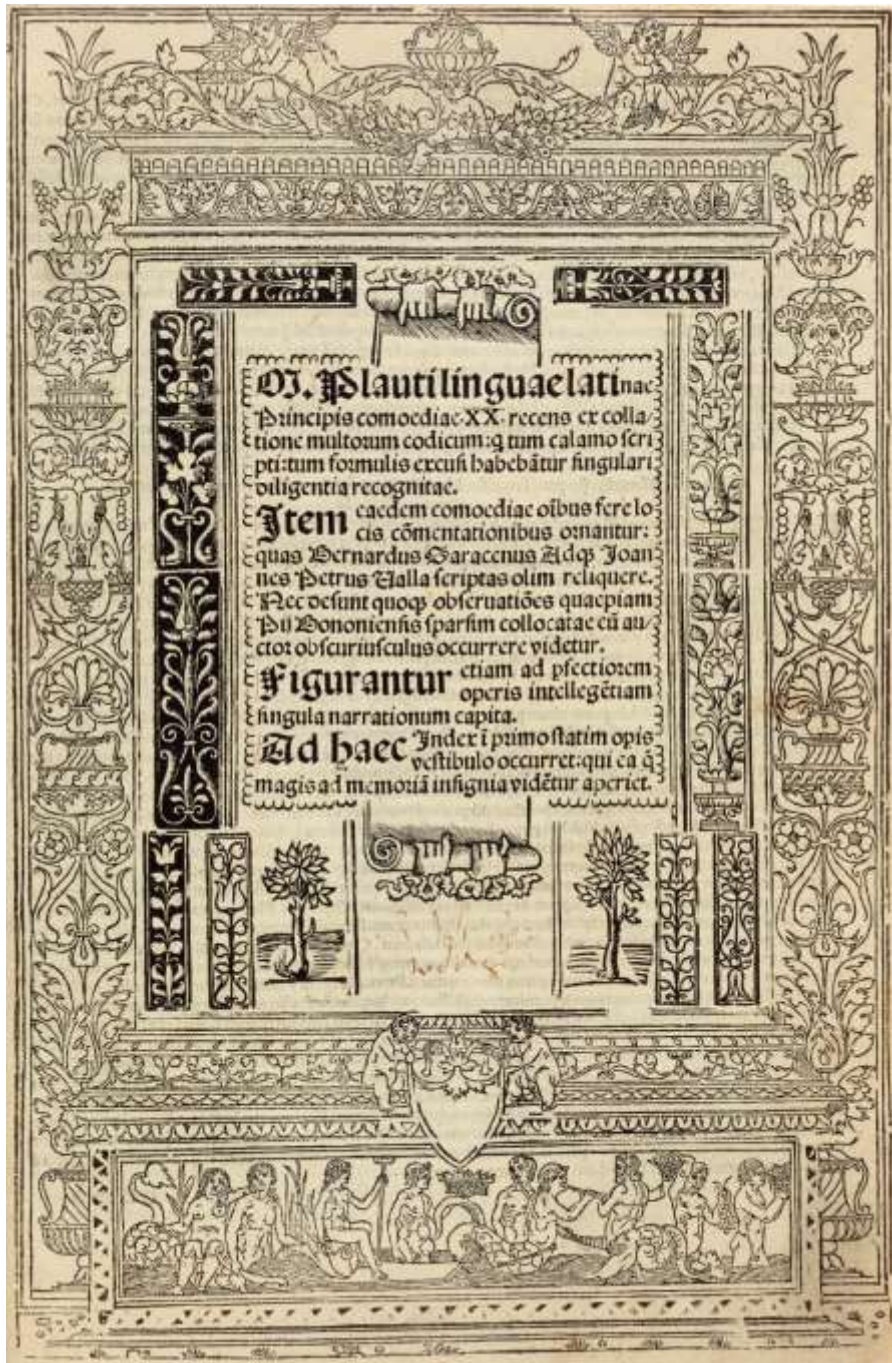 M. Plauti linguae latinae
Principis comoediae·XX· recens ex colla/
tione multorum codicum:q̃ tum calamo scri
pti:tum formulis excusi habebãtur singulari
diligentia recognitae.
Item eaedem comoediae oĩbus fere lo
cis cõmentationibus ornantur:
quas Bernardus Saracenus Adqꝫ Joan
nes Petrus Valla scriptas olim reliquere.
Nec desunt quoqꝫ obseruatiões quaepiam
Pij Bononiensis sparsim collocatae cũ au/
ctor obscuriusculus occurrere videtur.
Figurantur etiam ad pfectiorem
operis intellegẽtiam
singula narrationum capita.
Ad haec Index ĩ primo statim opis
vestibulo occurret:qui ea q̃
magis ad memoriã insignia vidẽtur aperiet.